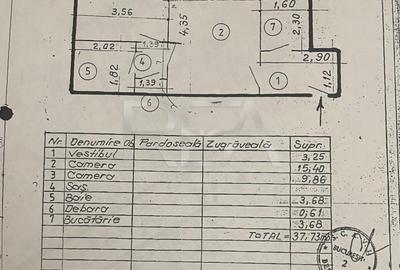 3,56
1,60
4,35
2
7
2,30
2,02
1,39
2,90
4
5
1,82
1,39
1
1,12
6
Nr. Denumire Pardoseală Zugrăveală Supr.
1 Vestibul 3,25
2 Camera 15,40
3 Camera 9,86
4 Sas
5 Baie 3,68
6 Debara 0,61
7 Bucătărie 3,68
TOTAL = 37,73
BUCUREȘTI